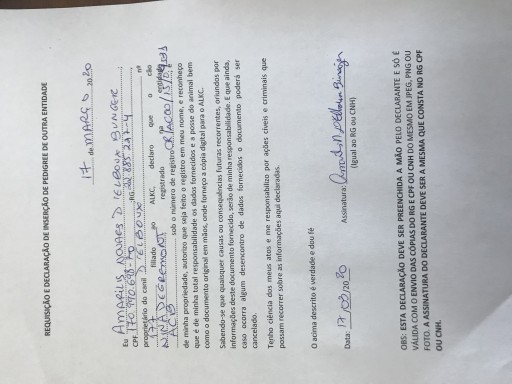 REQUISIÇÃO E DECLARAÇÃO DE INSERÇÃO DE PEDIGREE DE OUTRA ENTIDADE
17 de MARÇO 2020
Eu AMARILIS NOVAES D
CPF RG
proprietário do canil nº
177 filiado ao ALKC, declaro que o cão
registrado na entidade
sob o número de registro
de minha propriedade, autorizo que seja feito o registro em meu nome, e reconheço
que é de minha total responsabilidade os dados fornecidos e a posse do animal bem
como o documento original em mãos, onde forneço a cópia digital para o ALKC.
Sabendo-se que quaisquer causas ou consequências futuras recorrentes, oriundos por
informações deste documento fornecido, serão de minha responsabilidade. E que ainda,
caso ocorra algum desencontro de dados fornecidos o documento poderá ser
cancelado.
Tenho ciência dos meus atos e me responsabilizo por ações cíveis e criminais que
possam recorrer sobre as informações aqui declaradas.
O acima descrito é verdade e dou fé
Data: 17/03/2020 Assinatura:
(Igual ao RG ou CNH)
OBS: ESTA DECLARAÇÃO DEVE SER PREENCHIDA A MÃO PELO DECLARANTE E SÓ É
VÁLIDA COM O ENVIO DAS CÓPIAS DO RG E CPF OU CNH DO MESMO EM JPEG, PNG OU
FOTO. A ASSINATURA DO DECLARANTE DEVE SER A MESMA QUE CONSTA NO RG CPF
OU CNH.